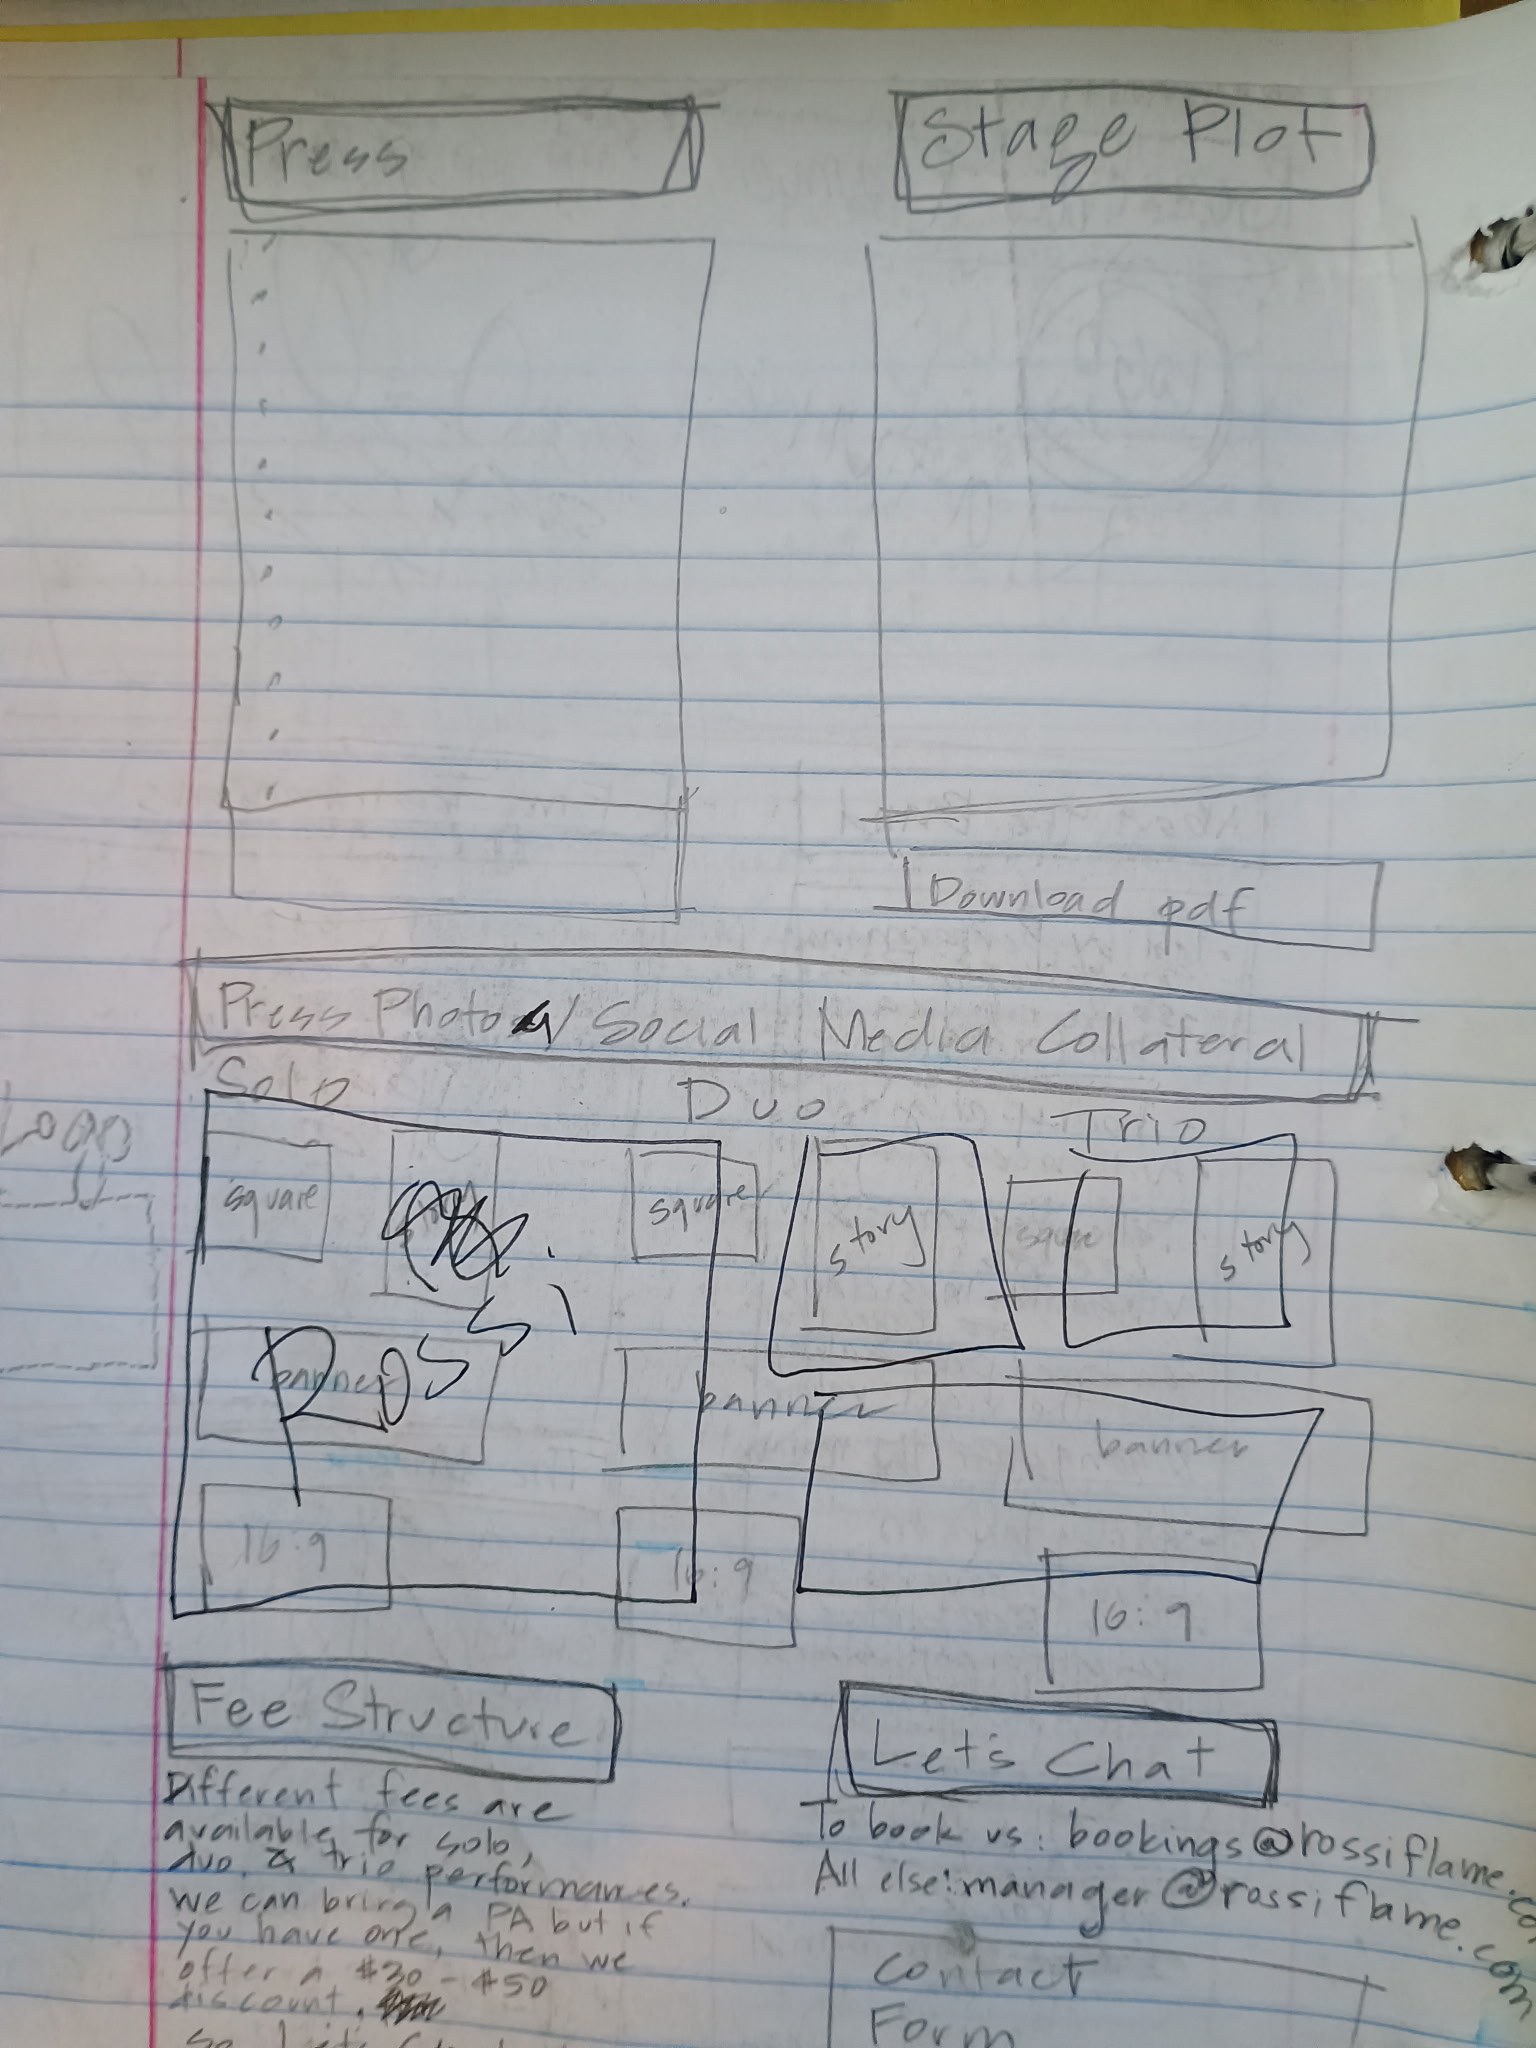 Press
Stage Plot
Download pdf
Press Photo / Social Media Collateral
Solo
Duo
Trio
Logo
square
square
story
square
story
Rossi
banner
banner
banner
16:9
16:9
16:9
Fee Structure
Different fees are
available for solo,
duo, & trio performances.
we can bring a PA but if
you have one, then we
offer a $30 - $50
discount.
So Let's
Let's Chat
To book us: bookings@rossiflame.com
All else: manager@rossiflame.com
Contact
Form